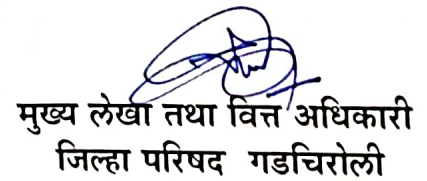 मुख्य लेखा तथा वित्त अधिकारी
जिल्हा परिषद गडचिरोली